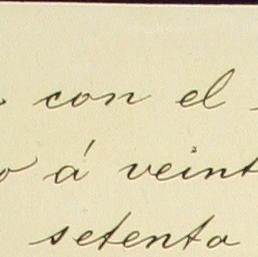 con el
á veint
setenta